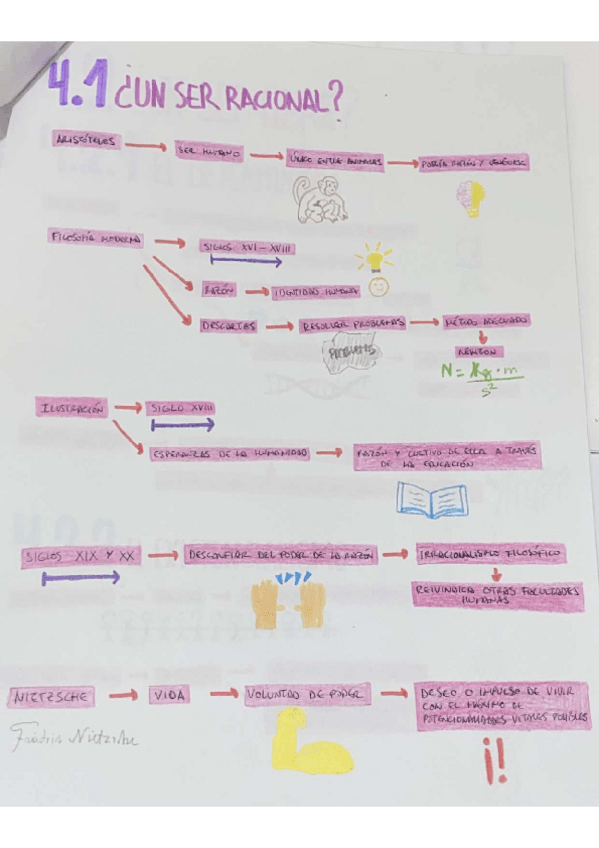 4.1 ¿UN SER RACIONAL?
ARISTÓTELES SER HUMANO ÚNICO ENTRE ANIMALES POSEÍA RAZÓN Y
FILOSOFÍA MODERNA SIGLOS XVI-XVIII
RAZÓN IDENTIDAD HUMANA
DESCARTES RESOLVER PROBLEMAS MÉTODO ADECUADO
PROBLEMAS NEWTON
N = Kg · m
s²
ILUSTRACIÓN SIGLO XVIII
ESPERANZAS DE LA HUMANIDAD RAZÓN Y CULTIVO DE ELLA A TRAVÉS
DE LA EDUCACIÓN
SIGLOS XIX Y XX DESCONFIAR DEL PODER DE LA RAZÓN IRRACIONALISMO FILOSÓFICO
REIVINDICA OTRAS FACULTADES
HUMANAS
NIETZSCHE VIDA VOLUNTAD DE PODER DESEO O IMPULSO DE VIVIR
CON EL MÁXIMO DE
POTENCIONALIDADES VITALES POSIBLES
Nietzsche
¡!